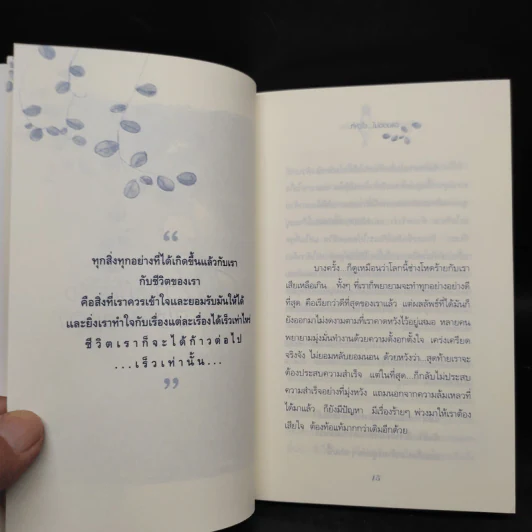 “
ทุกสิ่งทุกอย่างที่ได้เกิดขึ้นแล้วกับเรา
กับชีวิตของเรา
คือสิ่งที่เราควรเข้าใจและยอมรับมันให้ได้
และยิ่งเราทำใจกับเรื่องแต่ละเรื่องได้เร็วเท่าไหร่
ชีวิตเราก็จะได้ก้าวต่อไป
...เร็วเท่านั้น...
”
บางครั้ง ก็ดูเหมือนว่าโลกนี้ช่างโหดร้ายกับเรา
เสียเหลือเกิน ทั้งๆ ที่เราก็พยายามจะทำทุกอย่างอย่างดี
ที่สุด คือเรียกว่าดีที่สุดของเราแล้ว แต่ผลลัพธ์ที่ได้มันก็
ยังออกมาไม่งดงามตามที่เราคาดหวังไว้อยู่เสมอ หลายคน
พยายามมุ่งมั่นทำงานด้วยความตั้งอกตั้งใจ เคร่งเครียด
จริงจัง ไม่ยอมหลับยอมนอน ด้วยหวังว่า...สุดท้ายเราจะ
ต้องประสบความสำเร็จ แต่ในที่สุด...ก็กลับไม่ประสบ
ความสำเร็จอย่างที่มุ่งหวัง แถมนอกจากความล้มเหลวที่
ได้มาแล้ว ก็ยังมีปัญหา มีเรื่องร้ายๆ พ่วงมาให้เราต้อง
เสียใจ ต้องท้อแท้มากกว่าเดิมอีกด้วย